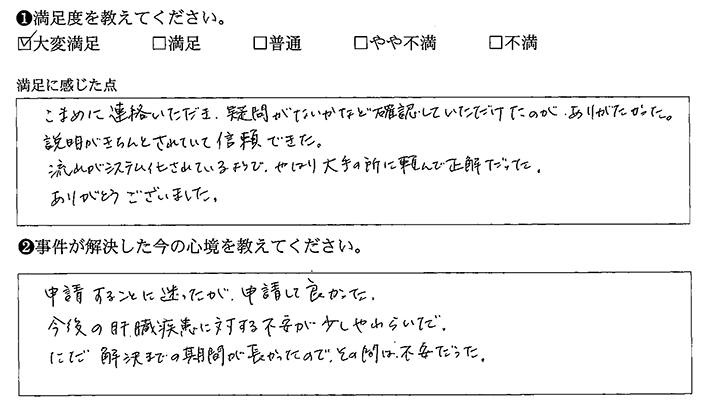 ❶満足度を教えてください。
☑大変満足 □満足 □普通 □やや不満 □不満
満足に感じた点
こまめに連絡いただき、疑問がないかなど確認していただけたのが、ありがたかった。
説明がきちんとされていて信頼できた。
流れがシステム化されているようで、やはり大手の所に頼んで正解だった。
ありがとうございました。
❷事件が解決した今の心境を教えてください。
申請することに迷ったが、申請して良かった。
今後の肝臓疾患に対する不安が少しやわらいで。
ただ解決までの期間が長かったので、その間は、不安だった。